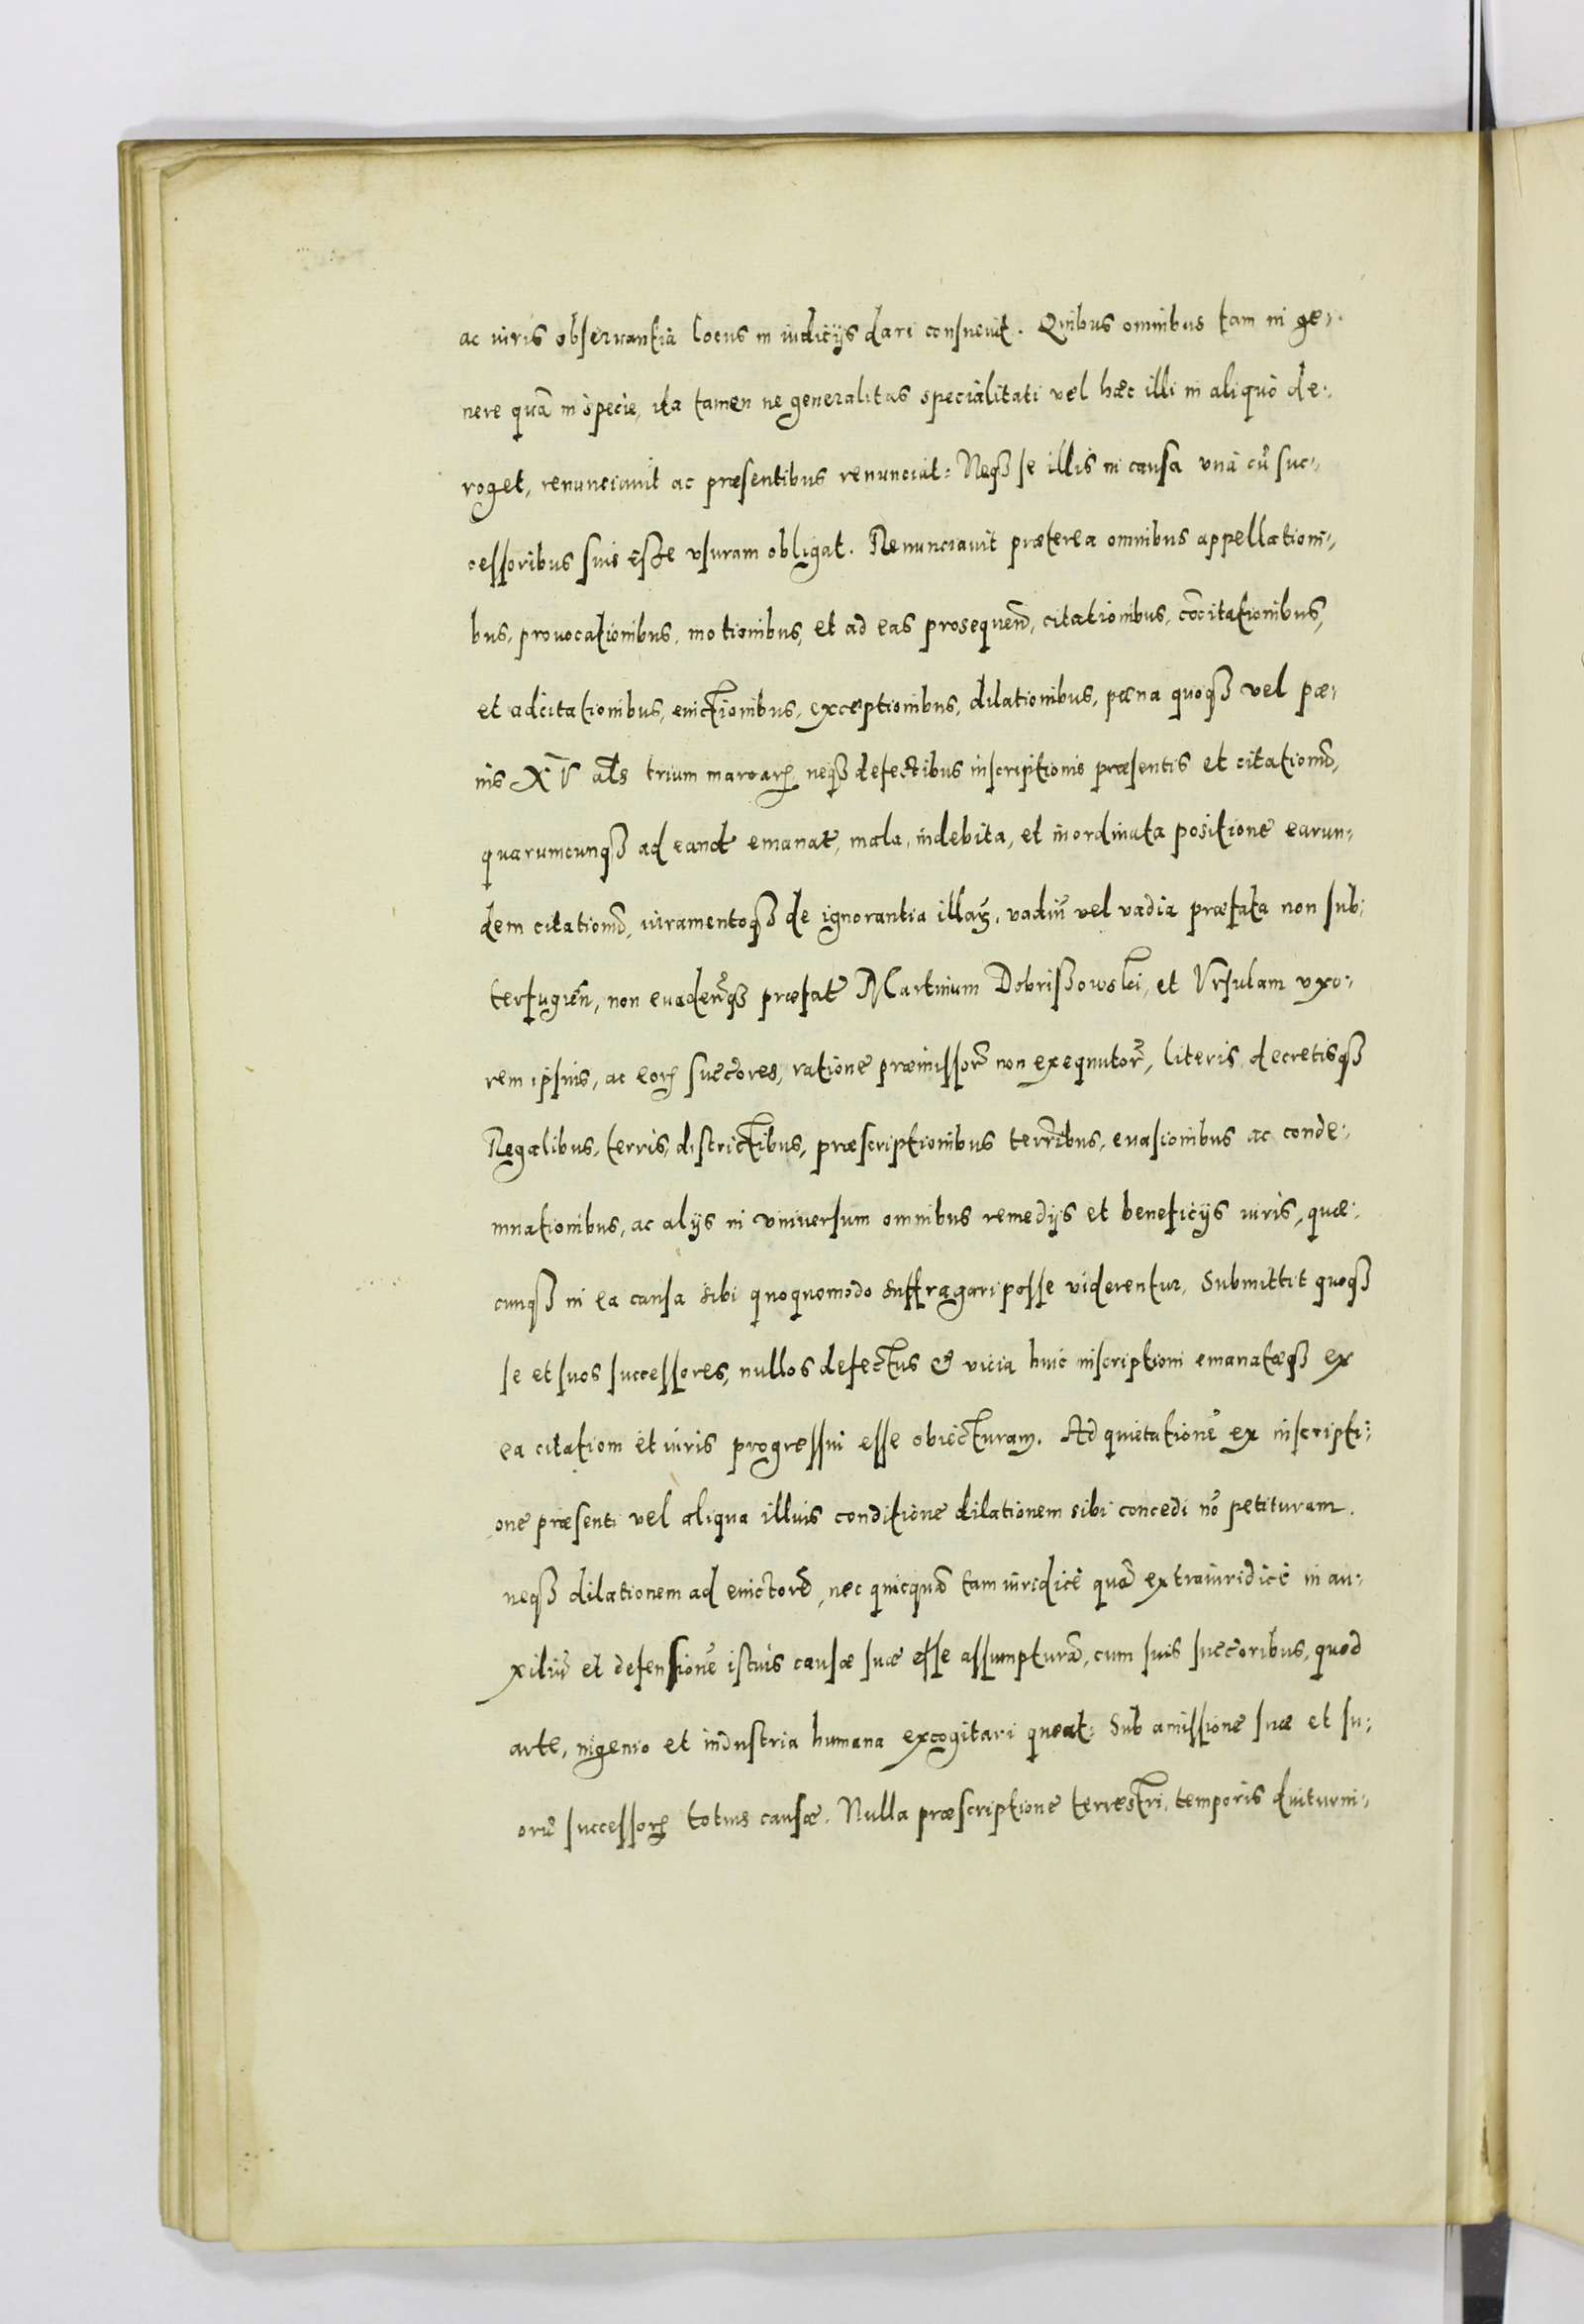 ac iuris obseruantia locus in iudicijs dari consueuit. Quibus omnibus tam in ge-
nere quā in specie, ita tamen ne generalitas specialitati vel hæc illi in aliquo de-
roget, renunciauit ac præsentibus renunciat: Neqꝫ se illis in causa vna cū suc-
cessoribus suis esse vsuram obligat. Renunciauit præterea omnibus appellationi-
bus, prouocationibus, motionibus, et ad eas prosequen̄, citationibus, cōcitationibus,
et adcitationibus, euictionibus, exceptionibus, dilationibus, pæna quoqꝫ vel pæ-
nis XV al̄s trium marcarꝝ neqꝫ defectibus inscriptionis præsentis et citationū,
quarumcunqꝫ ad eand̄ emanat̄, mala, indebita, et inordinata positione earun-
dem citationū, iuramentoqꝫ de ignorantia illaꝝ, vadiū vel vadia præfata non sub-
terfugien̄, non euaden̄qꝫ præfat̄ Martinum Dobrißowski, et Vrsulam vxo-
rem ipsius, ac eorꝝ succ̄ores, ratione præmissor̄ non exequutor̄, literis decretisqꝫ
Regalibus, terris, districtibus, præscriptionibus terr̄ibus, euasionibus ac conde-
mnationibus, ac alijs in vniuersum omnibus remedijs et beneficijs iuris, quæ-
cunqꝫ in ea causa sibi quoquomodo suffragari posse viderentur, Submittit quoqꝫ
se et suos successores, nullos defectus & vicia huic inscriptioni emanatæqꝫ ex
ea citationi et iuris progressui esse obiecturam. Ad quietationē ex inscripti-
one præsenti vel aliqua illius conditione dilationem sibi concedi nō petituram.
neqꝫ dilationem ad euictorē, nec quicquā tam iuridicè quā extraiuridicè in au-
xiliū et defensionē istius causæ suæ esse assumpturā, cum suis succ̄oribus, quod
arte, ingenio et industria humana excogitari queat: Sub amissione suæ et su-
orū successorꝝ totius causæ. Nulla præscriptione terrestri, temporis diuturni-